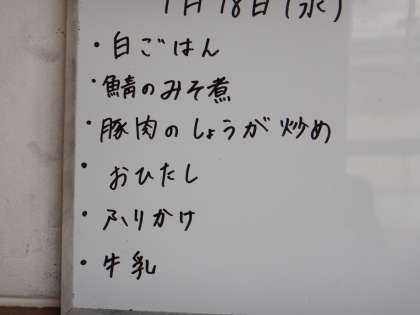 1月18日(水)
・白ごはん
・鯖のみそ煮
・豚肉のしょうが炒め
・おひたし
・ふりかけ
・牛乳